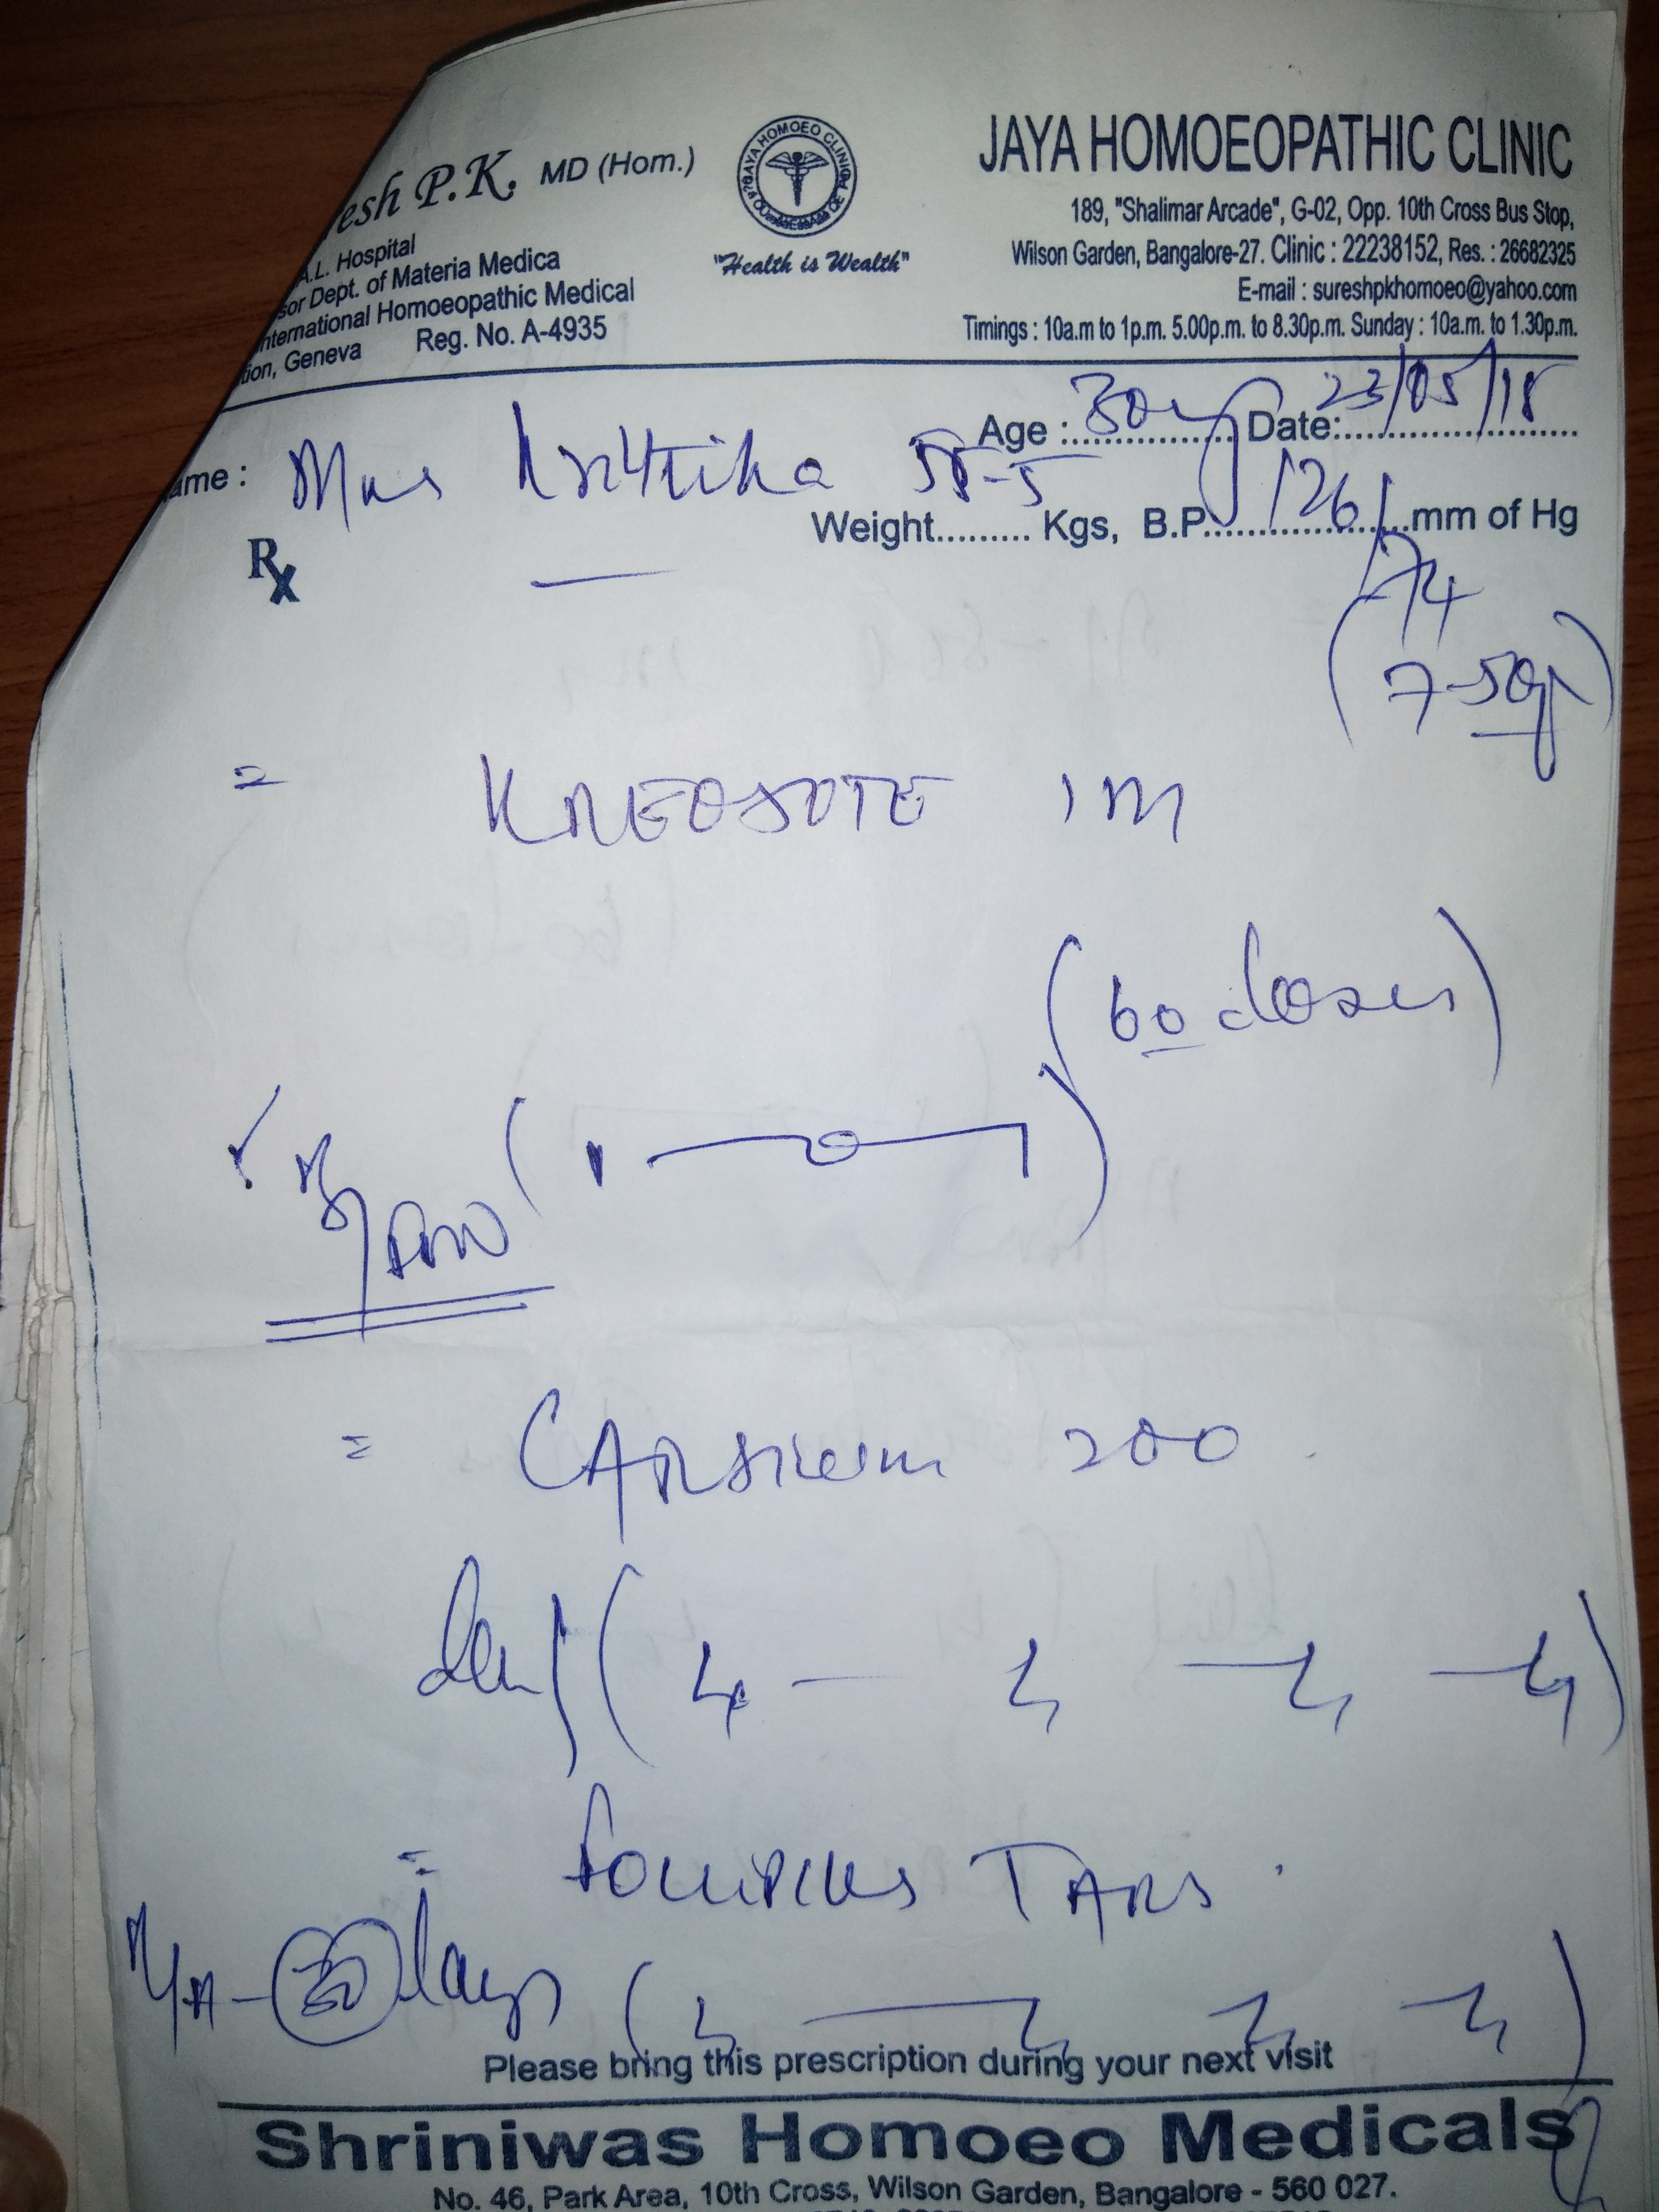 esh P.K. MD (Hom.)
A.L. Hospital
sor Dept. of Materia Medica
nternational Homoeopathic Medical
tion, Geneva Reg. No. A-4935
JAYA HOMOEO CLINIC
"Health is Wealth"
JAYA HOMOEOPATHIC CLINIC
189, "Shalimar Arcade", G-02, Opp. 10th Cross Bus Stop,
Wilson Garden, Bangalore-27. Clinic : 22238152, Res. : 26682325
E-mail : sureshpkhomoeo@yahoo.com
Timings : 10a.m to 1p.m. 5.00p.m. to 8.30p.m. Sunday : 10a.m. to 1.30p.m.
Age : 30 Date: 23/05/18
ame : Mrs
Weight......... Kgs, B.P. 126/ mm of Hg
Rx
74
= KREOSOTE 1M
(60 doses)
= 200
(4 - 4 - 4 - 4)
= TABS
days
Please bring this prescription during your next visit
Shriniwas Homoeo Medicals
No. 46, Park Area, 10th Cross, Wilson Garden, Bangalore - 560 027.